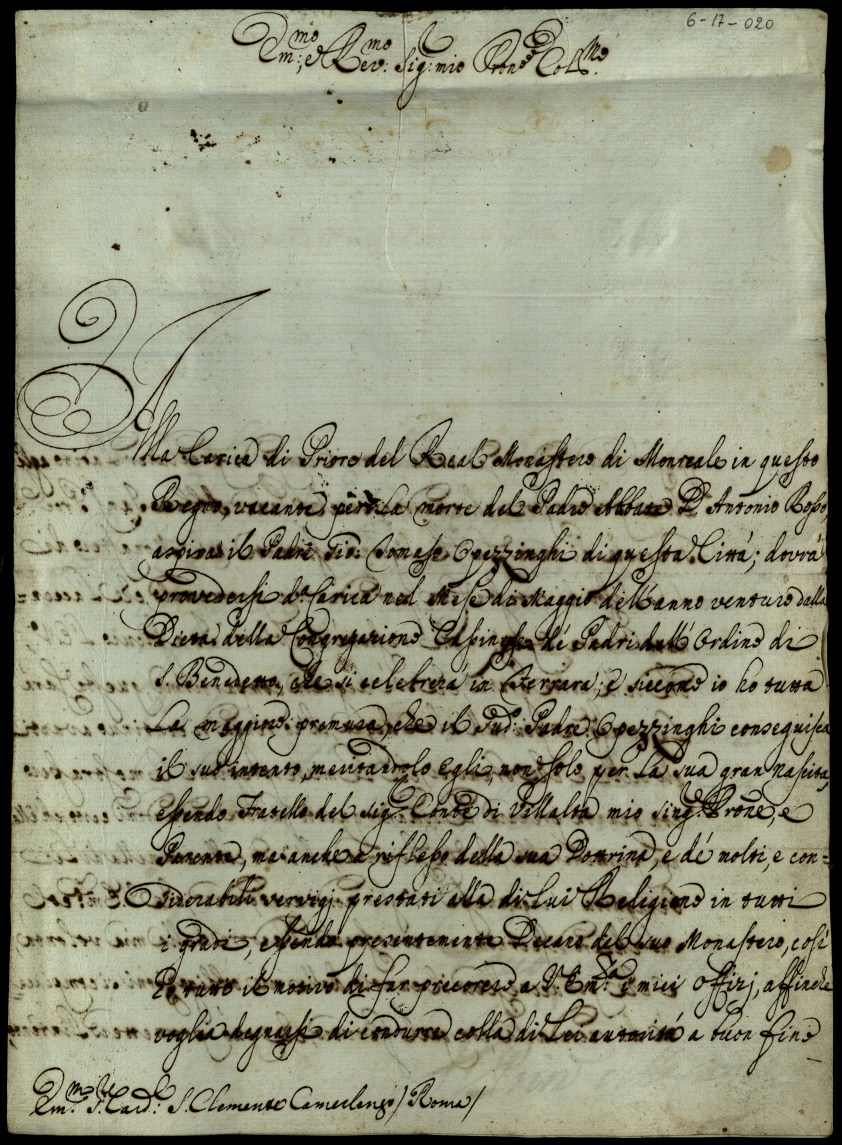 6-17-020
Em:mo, e Rev:mo Sig: mio Prone Col:mo
Alla Carica di Priore del Real Monastero di Monreale in questo
Regno, vacante per la morte del Padre Abbate D. Antonio Rosso,
aspira il Padre Gio: Tomaso Opezzinghi di questa Città; dovrà
provedersi da Carica nel Mese di Maggio dell'anno venturo dalla
Dieta della Congregazione Cassinese dé Padri dell'Ordine di
S. Benedetto, che si celebrerà in Ferrara; e siccome io ho tutta
La maggior premura, che il Sud: Padre Opezzinghi conseguisca
il suo intento, meritandolo Egli, non solo per la sua gran nascita,
essendo Fratello del Sig: Conte di Villalta mio Sing: Prone, e
Parente, ma anche a riflesso della sua Dottrina, e dé molti, e con=
siderabili servizj prestati alla di lui Religione in tutti
i gradi, essendo presentemente Decano del suo Monastero, così
ho tutto il motivo di far precorrere a V. Em:za i miei offizj, affinche
voglia degnarsi di condurre colla di Lei autorità a buon fine
Em:mo S. Card: S. Clemente Camerlengo / Roma /